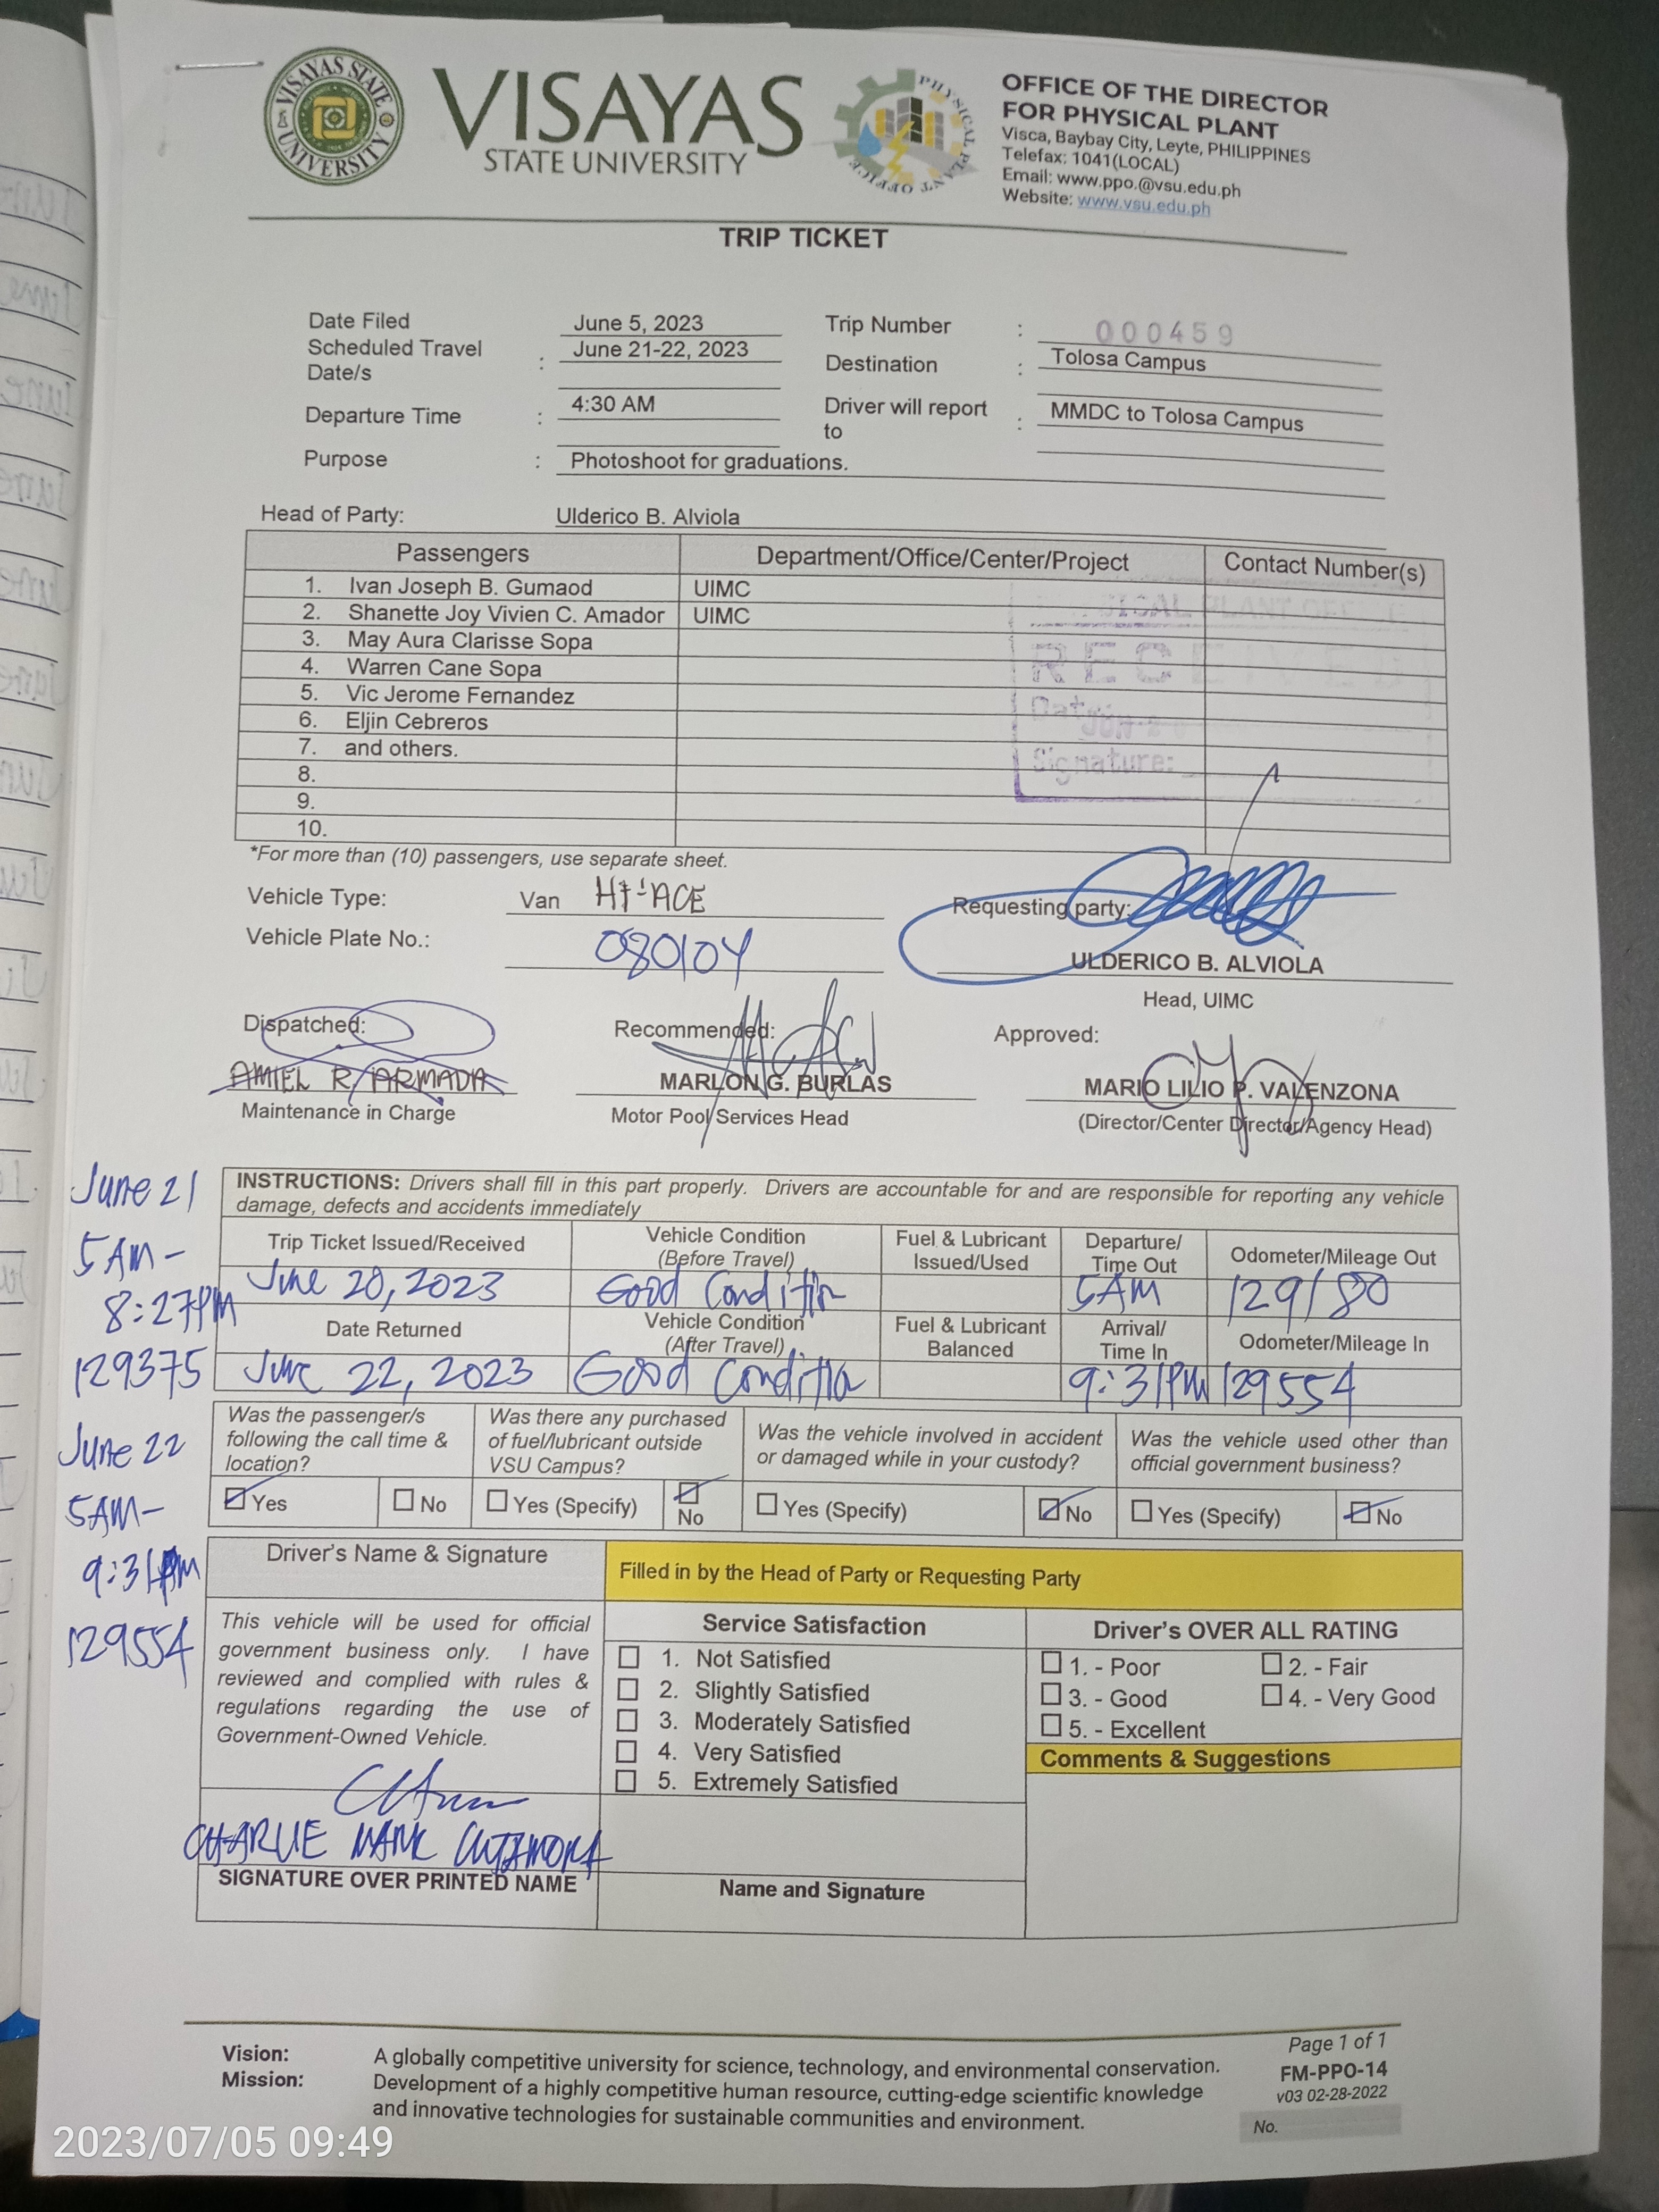 VISAYAS STATE UNIVERSITY
VISAYAS
STATE UNIVERSITY
PHYSICAL PLANT OFFICE
OFFICE OF THE DIRECTOR
FOR PHYSICAL PLANT
Visca, Baybay City, Leyte, PHILIPPINES
Telefax: 1041(LOCAL)
Email: www.ppo.@vsu.edu.ph
Website: www.vsu.edu.ph
TRIP TICKET
Date Filed June 5, 2023 Trip Number : 000459
Scheduled Travel Date/s : June 21-22, 2023 Destination : Tolosa Campus
Departure Time : 4:30 AM Driver will report to : MMDC to Tolosa Campus
Purpose : Photoshoot for graduations.
Head of Party: Ulderico B. Alviola
Passengers Department/Office/Center/Project Contact Number(s)
1. Ivan Joseph B. Gumaod UIMC
2. Shanette Joy Vivien C. Amador UIMC
3. May Aura Clarisse Sopa
4. Warren Cane Sopa
5. Vic Jerome Fernandez
6. Eljin Cebreros
7. and others.
8.
9.
10.
PHYSICAL PLANT OFFICE
RECEIVED
Date:
Signature:
*For more than (10) passengers, use separate sheet.
Vehicle Type: Van HI-ACE Requesting party:
Vehicle Plate No.: 080104
ULDERICO B. ALVIOLA
Head, UIMC
Dispatched: Recommended: Approved:
AMIEL R. ARMADA MARLON G. BURLAS MARIO LILIO P. VALENZONA
Maintenance in Charge Motor Pool Services Head (Director/Center Director/Agency Head)
June 21
5AM-
8:27PM
129375
June 22
5AM-
9:31PM
129554
INSTRUCTIONS: Drivers shall fill in this part properly. Drivers are accountable for and are responsible for reporting any vehicle
damage, defects and accidents immediately
Trip Ticket Issued/Received Vehicle Condition (Before Travel) Fuel & Lubricant Issued/Used Departure/ Time Out Odometer/Mileage Out
June 20, 2023 Good Condition 5AM 129180
Date Returned Vehicle Condition (After Travel) Fuel & Lubricant Balanced Arrival/ Time In Odometer/Mileage In
June 22, 2023 Good Condition 9:31PM 129554
Was the passenger/s following the call time & location? Was there any purchased of fuel/lubricant outside VSU Campus? Was the vehicle involved in accident or damaged while in your custody? Was the vehicle used other than official government business?
Yes No Yes (Specify) No Yes (Specify) No Yes (Specify) No
Driver's Name & Signature
Filled in by the Head of Party or Requesting Party
This vehicle will be used for official
government business only. I have
reviewed and complied with rules &
regulations regarding the use of
Government-Owned Vehicle.
CHARLIE MARK
SIGNATURE OVER PRINTED NAME
Service Satisfaction
1. Not Satisfied
2. Slightly Satisfied
3. Moderately Satisfied
4. Very Satisfied
5. Extremely Satisfied
Name and Signature
Driver's OVER ALL RATING
1. - Poor 2. - Fair
3. - Good 4. - Very Good
5. - Excellent
Comments & Suggestions
Vision: A globally competitive university for science, technology, and environmental conservation.
Mission: Development of a highly competitive human resource, cutting-edge scientific knowledge
and innovative technologies for sustainable communities and environment.
Page 1 of 1
FM-PPO-14
v03 02-28-2022
No.
2023/07/05 09:49